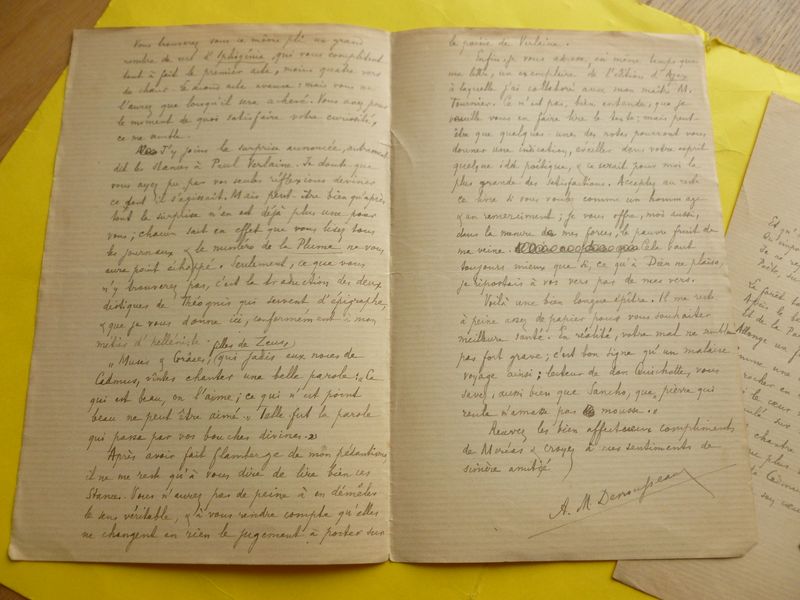 Vous trouverez sous ce même pli un grand
nombre de vers d'Iphigénie qui vous complètent
tout à fait le premier acte, moins quatre vers
du chœur. Le second acte avance; mais vous ne
l'aurez que lorsqu'il sera achevé. Vous avez, pour
le moment de quoi satisfaire votre curiosité,
ce me semble.
J'y joins la surprise annoncée, autrement
dit les Stances à Paul Verlaine. Je doute que
vous ayez pu par vos seules réflexions deviner
ce dont il s'agissait. Mais peut-être bien qu'après
tout la surprise n'en est déjà plus une pour
vous; chacun sait en effet que vous lisez tous
les journaux & le numéro de la Plume ne vous
aura point échappé. Seulement, ce que vous
n'y trouverez pas, c'est la traduction des deux
distiques de Théognis qui servent d'épigraphe,
& que je vous donne ici, conformément à mon
métier d'helléniste.
"Muses & Grâces, filles de Zeus, qui jadis aux noces de
Cadmus, vîntes chanter une belle parole: "Ce
qui est beau, on l'aime; ce qui n'est point
beau ne peut être aimé." Telle fut la parole
qui passa par vos bouches divines."
Après avoir fait flamberge de mon pédantisme
il ne me reste qu'à vous dire de lire bien ces
Stances. Vous n'aurez pas de peine à en démêler
le sens véritable, & à vous rendre compte qu'elles
ne changent en rien le jugement à porter sur
la poésie de Verlaine.
Enfin, je vous adresse, en même temps que
ma lettre, un exemplaire de l'édition d'Ajax
à laquelle j'ai collaboré avec mon maître M.
Tournier. Ce n'est pas, bien entendu, que je
veuille vous en faire lire le texte: mais peut-
être que quelques-unes des notes pourront vous
donner une indication, éveiller dans votre esprit
quelque idée poétique, & ce serait pour moi la
plus grande des satisfactions. Acceptez au reste
ce livre si vous voulez comme un hommage
& un remerciment; je vous offre, moi aussi,
dans la mesure de mes forces, le pauvre fruit de
ma veine. Cela vaut
toujours mieux que si, ce qu'à Dieu ne plaise,
je ripostais à vos vers par de mes vers.
Voilà une bien longue épître. Il me reste
à peine assez de papier pour vous souhaiter
meilleure santé. En réalité, votre mal ne semble
pas fort grave; c'est bon signe qu'un malaise
voyage ainsi; lecteur de don Quichotte, vous
savez, aussi bien que Sancho, que, pierre qui
roule n'amasse pas mousse.
Recevez les bien affectueux compliments
de Moréas & croyez à mes sentiments de
sincère amitié
A. M. Desrousseaux